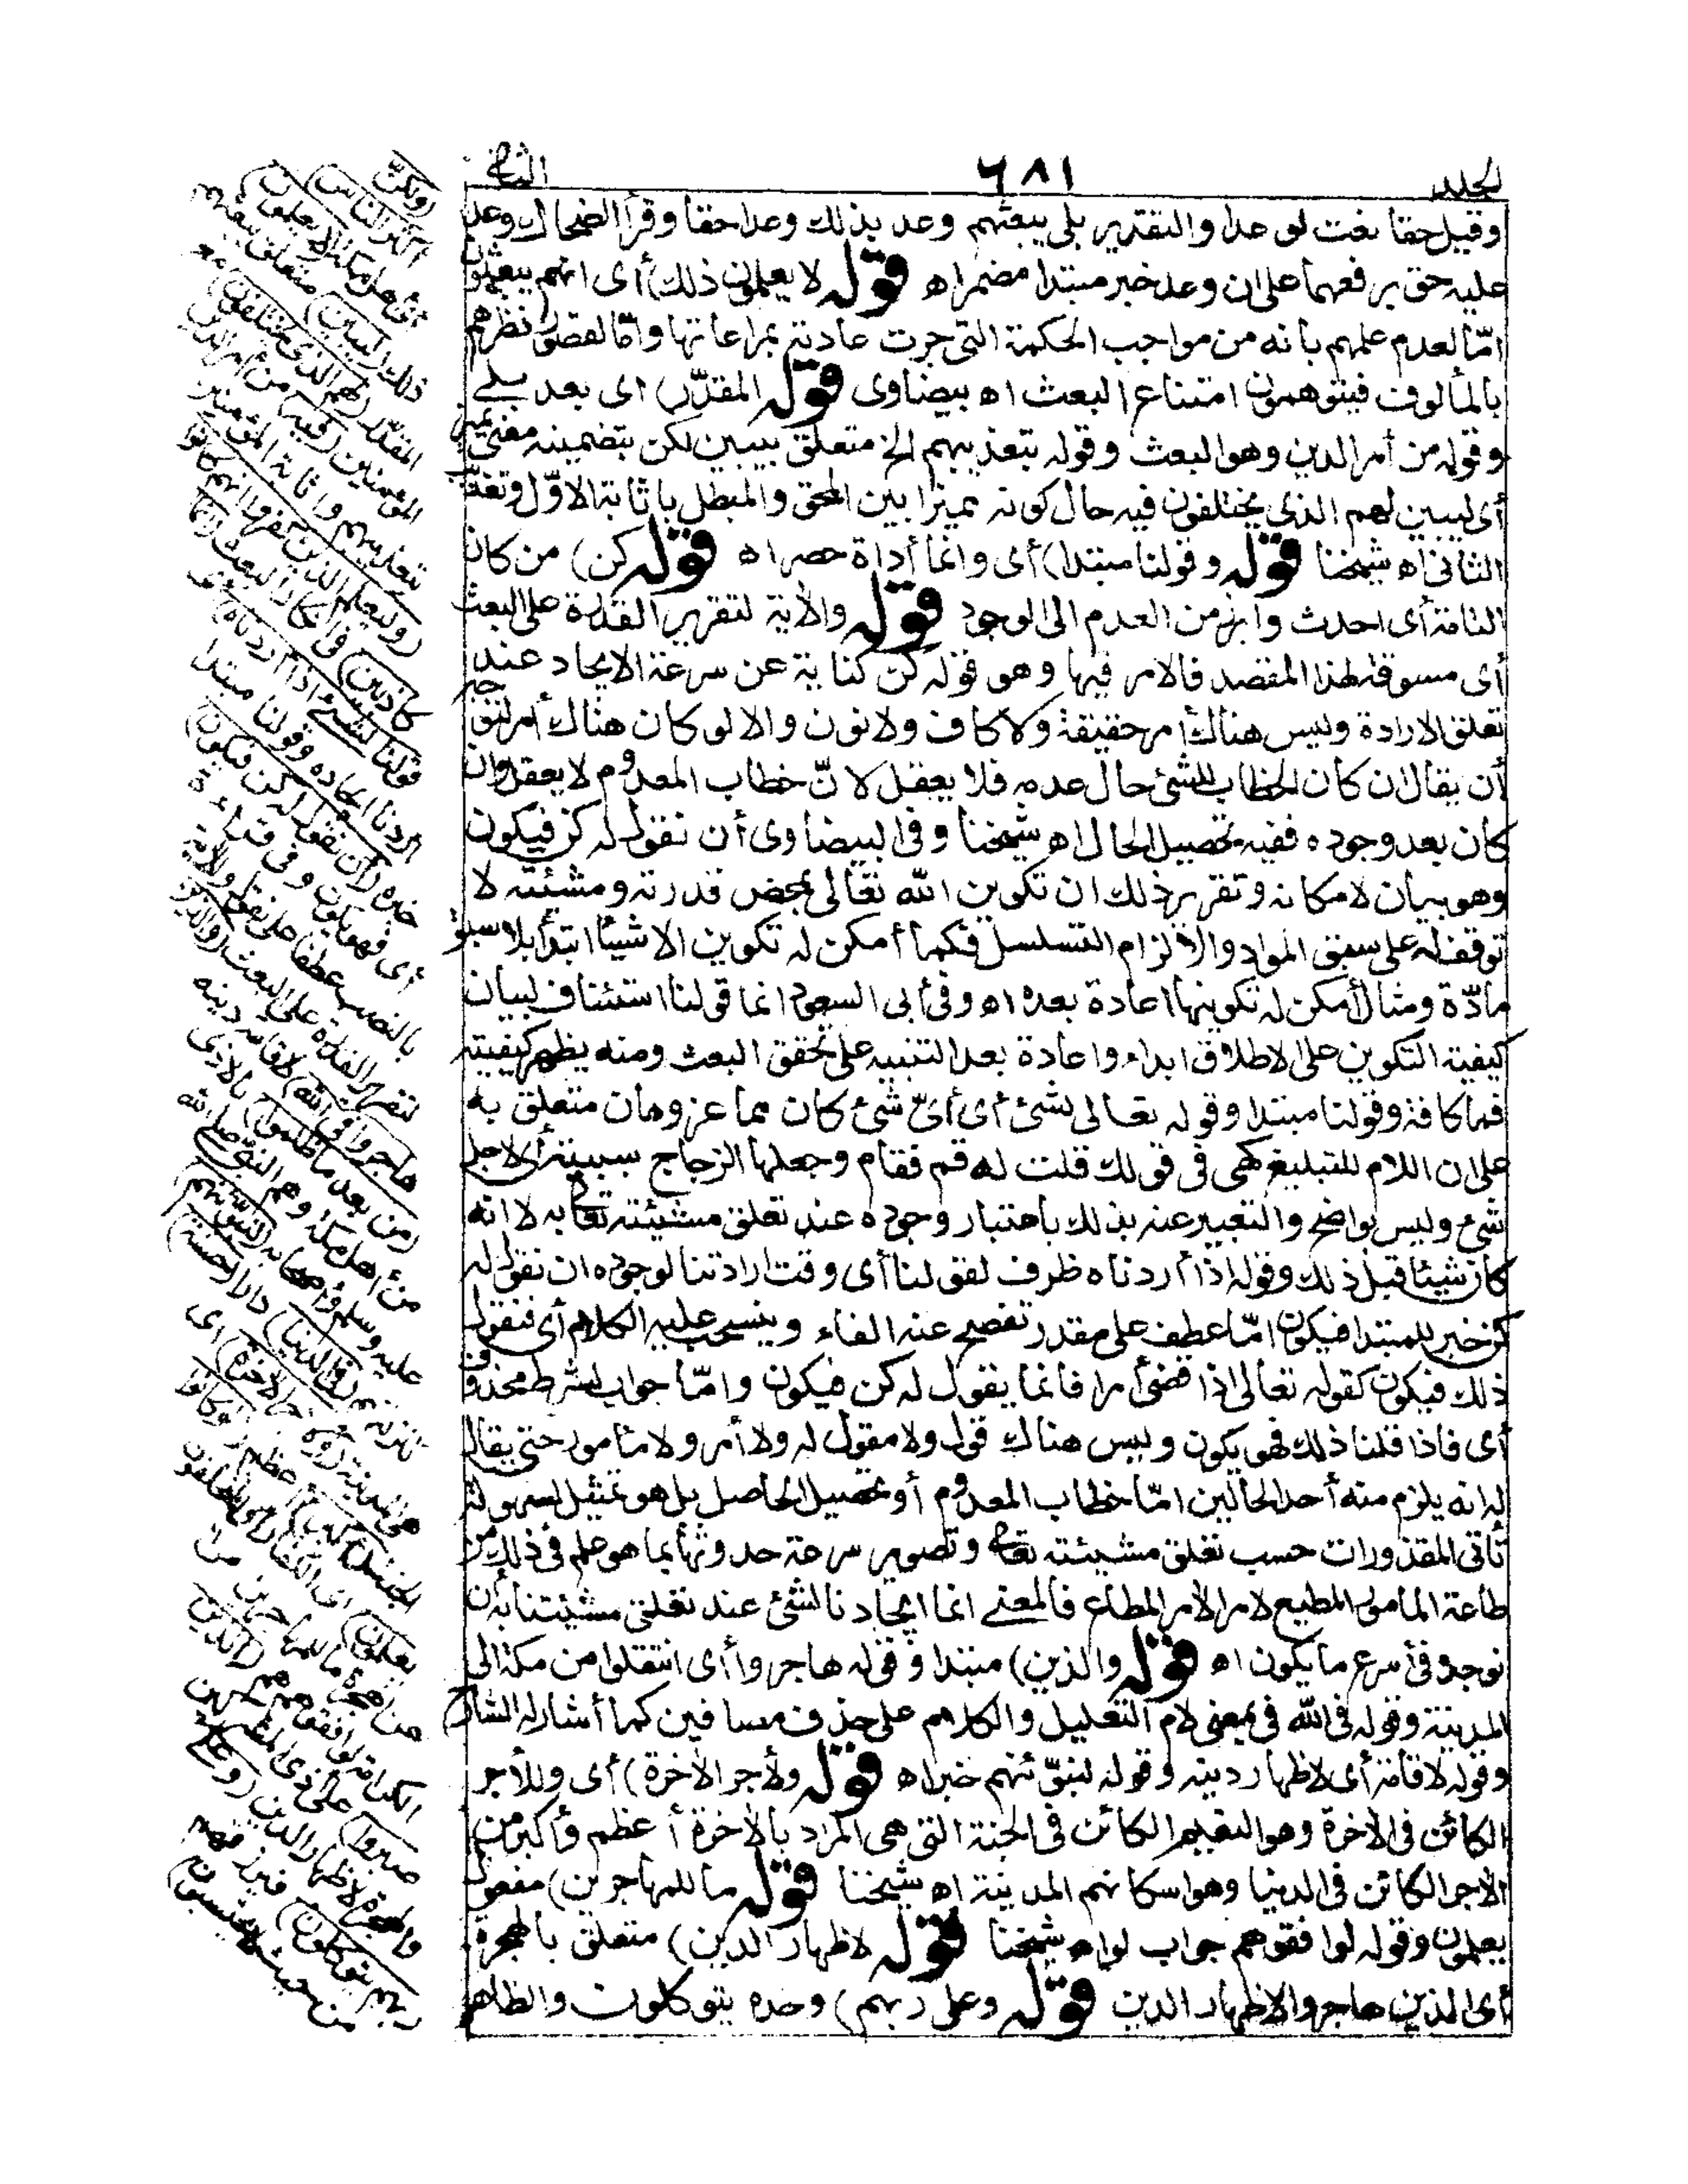 الجلد ٦٨١ الثاني
وقيل حقا نعت لوعدا والتقدير بلى يبعثهم وعد بذلك وعدا حقا وقرأ الضحاك وعد
عليه حق برفعهما على ان وعد خبر مبتدا مضمر اه قوله لا يعلمون ذلك) أى انهم يبعثون
امّا لعدم علمهم بأنه من مواجب الحكمة التى جرت عادته بمراعاتها وامّا لقصور نظرهم
بالمألوف فيتوهمون امتناع البعث اه بيضاوى قوله المقدّر) اى بعد بلى
وقوله من أمر الدين وهو البعث وقوله بتعذيبهم الخ متعلق بيبين لكن بتضمينه معنى يميز
أى ليبين لهم الذي يختلفون فيه حال كونه مميزا بين المحق والمبطل باثابة الاوّل وتعذيب
الثانى اه شيخنا قوله وقولنا مبتدا) أى وانما أداة حصر اه قوله كن) من كان
التامة أى احدث وابرز من العدم الى الوجود قوله والآية لتقرير القدرة على البعث
أى مسوقة لهذا المقصد فالامر فيها وهو قوله كن كناية عن سرعة الايجاد عند
تعلق الارادة وليس هناك أمر حقيقة ولا كاف ولا نون والا لو كان هناك أمر لتوجه
أن يقال ان كان الخطاب للشئ حال عدمه فلا يعقل لانّ خطاب المعدوم لا يعقل وان
كان بعد وجوده ففيه تحصيل الحال اه شيخنا وفى البيضاوى أن نقول له كن فيكون
وهو بيان لامكانه وتقرير ذلك ان تكوين الله تعالى بمحض قدرته ومشئته لا
توقف له على سبق المواد والا لزام التسلسل فكما أمكن له تكوين الاشيئا ابتدأ بلا سبق
مادّة ومثال أمكن له تكوينها اعادة بعده اه وفى أبى السعود انما قولنا استئناف لبيان
كيفية التكوين على الاطلاق ابداء واعادة بعد التنبيه على تحقق البعث ومنه يظهر كيفيته
فما كافة وقولنا مبتدا وقوله تعالى لشئ أى أىّ شئ كان مما عز وهان متعلق به
على ان اللام للتبليغ كهى فى قولك قلت له قم فقام وجعلها الزجاج سببية أى لاجل
شئ وليس بواضح والتعبير عنه بذلك باعتبار وجوده عند تعلق مشيئته تعالى به لا انه
كان شيئا قبل ذلك وقوله اذا أردناه ظرف لقولنا أى وقت ارادتنا لوجوده ان نقول له
كن خبر للمبتدا فيكون امّا عطف على مقدر تفصح عنه الفاء وينسحب عليه الكلام أى فنقول
ذلك فيكون كقوله تعالى اذا قضى أمرا فانما يقول له كن فيكون وامّا جواب لشرط محذوف
أى فاذا قلنا ذلك فهو يكون وليس هناك قول ولا مقول له ولا أمر ولا مامور حتى يقال
انه يلزم منه أحد الحالين امّا خطاب المعدوم أو تحصيل الحاصل بل هو تمثيل لسهولة
تأتى المقدورات حسب تعلق مشيئته تعالى وتصوير سرعة حدوثها بما هو علم فى ذلك من
طاعة المامور المطيع لامر الآمر المطاع فالمعنى انما ايجادنا لشئ عند تعلق مشيئتنا به أن
نوجده فى أسرع ما يكون اه قوله والذين) مبتدا وقوله هاجروا أى انتقلوا من مكة الى
المدينة وقوله فى الله فى بمعنى لام التعليل والكلام على حذف مضافين كما أشار له الشارح
وقوله لاقامة أى لاظهار دينه وقوله لنبوّئنهم خبر اه قوله ولأجر الآخرة) أى وللأجر
الكائن فى الآخرة وهو النعيم الكائن فى الجنة التى هى المراد بالآخرة أعظم وأكبر من
الاجر الكائن فى الدنيا وهو اسكانهم المدينة اه شيخنا قوله ما للمهاجرين) مفعول
يعلمون وقوله لوافقوهم جواب لو اه شيخنا قوله لاظهار الدين) متعلق بالهجرة
أى الذين هاجروا لاظهار الدين قوله وعلى ربهم) وحده يتوكلون والظاهر
(ولكنّ
أكثر الناس
المقدّر (لهم الذى يختلفون) مع
المؤمنين (فيه) من أمر الدين
بتعذيبهم واثابة المؤمنين
(وليعلم الذين كفروا أنهم كانوا
كاذبين) فى انكار البعث (انما
قولنا لشئ اذا أردناه) أى
أردنا ايجاده وقولنا مبتدا
خبره (أن نقول له كن فيكون)
أى فهو يكون وفى قراءة
بالنصب عطفا على نقول والآية
لتقرير القدرة على البعث (والذين
هاجروا فى الله) لاقامة دينه
(من بعد ما ظلموا) بالاذى
من أهل مكة وهم النبى صلى الله
عليه وسلم وأصحابه (لنبوّئنهم)